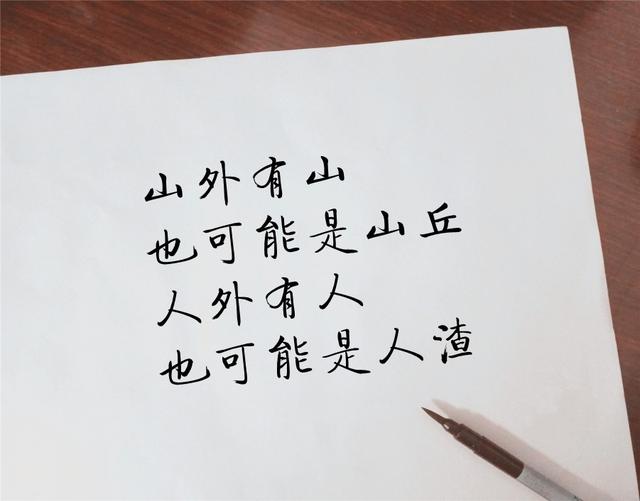 山外有山
也可能是山丘
人外有人
也可能是人渣